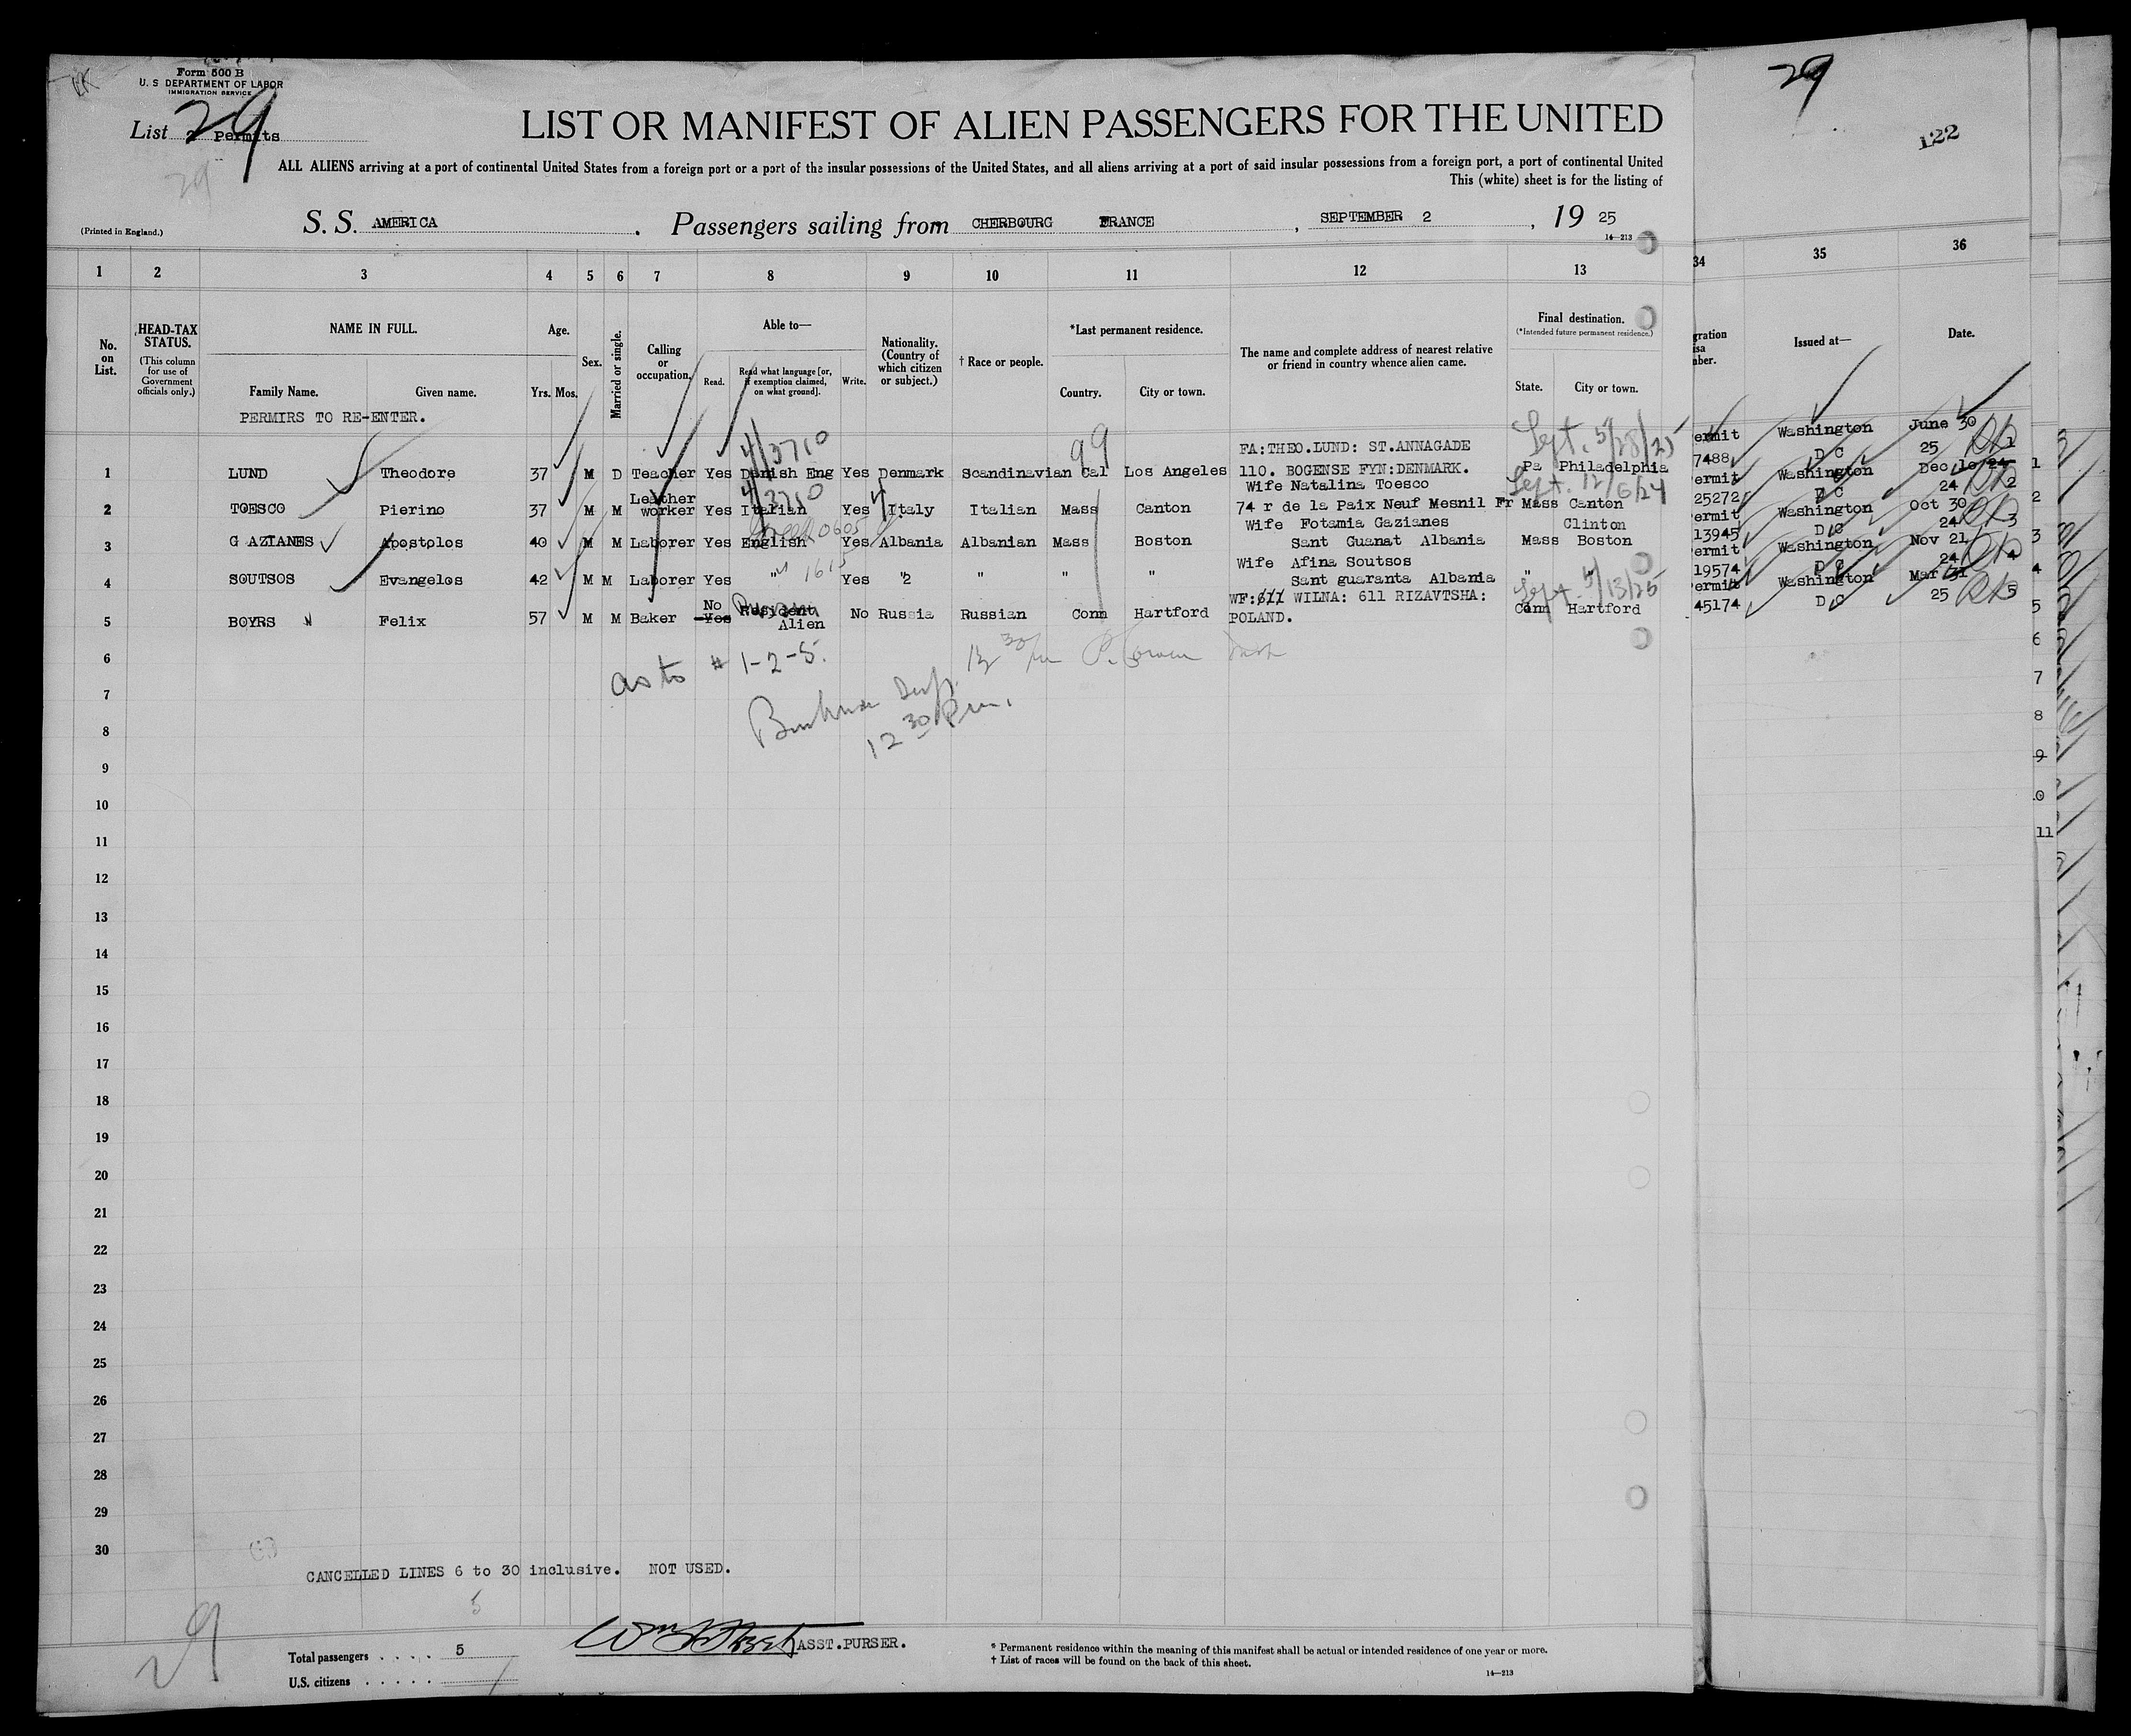 Form 500 B
U. S DEPARTMENT OF LABOR
IMMIGRATION SERVICE
29
29
122
List 2 Permits
29
LIST OR MANIFEST OF ALIEN PASSENGERS FOR THE UNITED
ALL ALIENS arriving at a port of continental United States from a foreign port or a port of the insular possessions of the United States, and all aliens arriving at a port of said insular possessions from a foreign port, a port of continental United
This (white) sheet is for the listing of
(Printed in England.)
S. S. AMERICA . Passengers sailing from CHERBOURG FRANCE , SEPTEMBER 2 , 19 25
14—213
1 2 3 4 5 6 7 8 9 10 11 12 13 34 35 36
No. on List.
HEAD-TAX STATUS.
(This column for use of Government officials only.)
NAME IN FULL.
Family Name. Given name.
Age.
Yrs. Mos.
Sex.
Married or single.
Calling or occupation.
Able to—
Read. Read what language [or, if exemption claimed, on what ground]. Write.
Nationality. (Country of which citizen or subject.)
† Race or people.
*Last permanent residence.
Country. City or town.
The name and complete address of nearest relative or friend in country whence alien came.
Final destination.
(*Intended future permanent residence.)
State. City or town.
gration
isa
nber.
Issued at—
Date.
PERMIRS TO RE-ENTER.
4/3710
99
Sept. 5/28/25
FA:THEO.LUND: ST.ANNAGADE
ermit Washington June 30
1 LUND Theodore 37 M D Teacher Yes Danish Eng Yes Denmark Scandinavian Cal Los Angeles 110. BOGENSE FYN:DENMARK. Pa Philadelphia 7488 D C 25 1
4/3710
Wife Natalina Toesco
Sept. 12/6/24
ermit Washington Dec 10 24
2 TOESCO Pierino 37 M M Leather worker Yes Italian Yes Italy Italian Mass Canton 74 r de la Paix Neuf Mesnil Fr Mass Canton 25272 D C 24 2
Wife Fotamia Gazianes Clinton
ermit Washington Oct 30
3 G AZIANES Apostolos 40 M M Laborer Yes English Yes Albania Albanian Mass Boston Sant Guanat Albania Mass Boston 13945 D C 24 3
Wife Afina Soutsos
ermit Washington Nov 21
4 SOUTSOS Evangelos 42 M M Laborer Yes " Yes " " " " Sant guaranta Albania " " 19574 D C 24 4
Sept. 5/13/25
WF:611 WILNA: 611 RIZAVTSHA:
ermit Washington Mar 31
5 BOYRS Felix 57 M M Baker No Yes Resident Alien No Russia Russian Conn Hartford POLAND. Conn Hartford 45174 D C 25 5
as to # 1-2-5.
12 30 Pm.
6
7
8
9
10
11
12
13
14
15
16
17
18
19
20
21
22
23
24
25
26
27
28
29
30
CANCELLED LINES 6 to 30 inclusive. NOT USED.
5
29
ASST.PURSER.
Total passengers . . . . 5
U.S. citizens . . . . .
* Permanent residence within the meaning of this manifest shall be actual or intended residence of one year or more.
† List of races will be found on the back of this sheet.
14—213